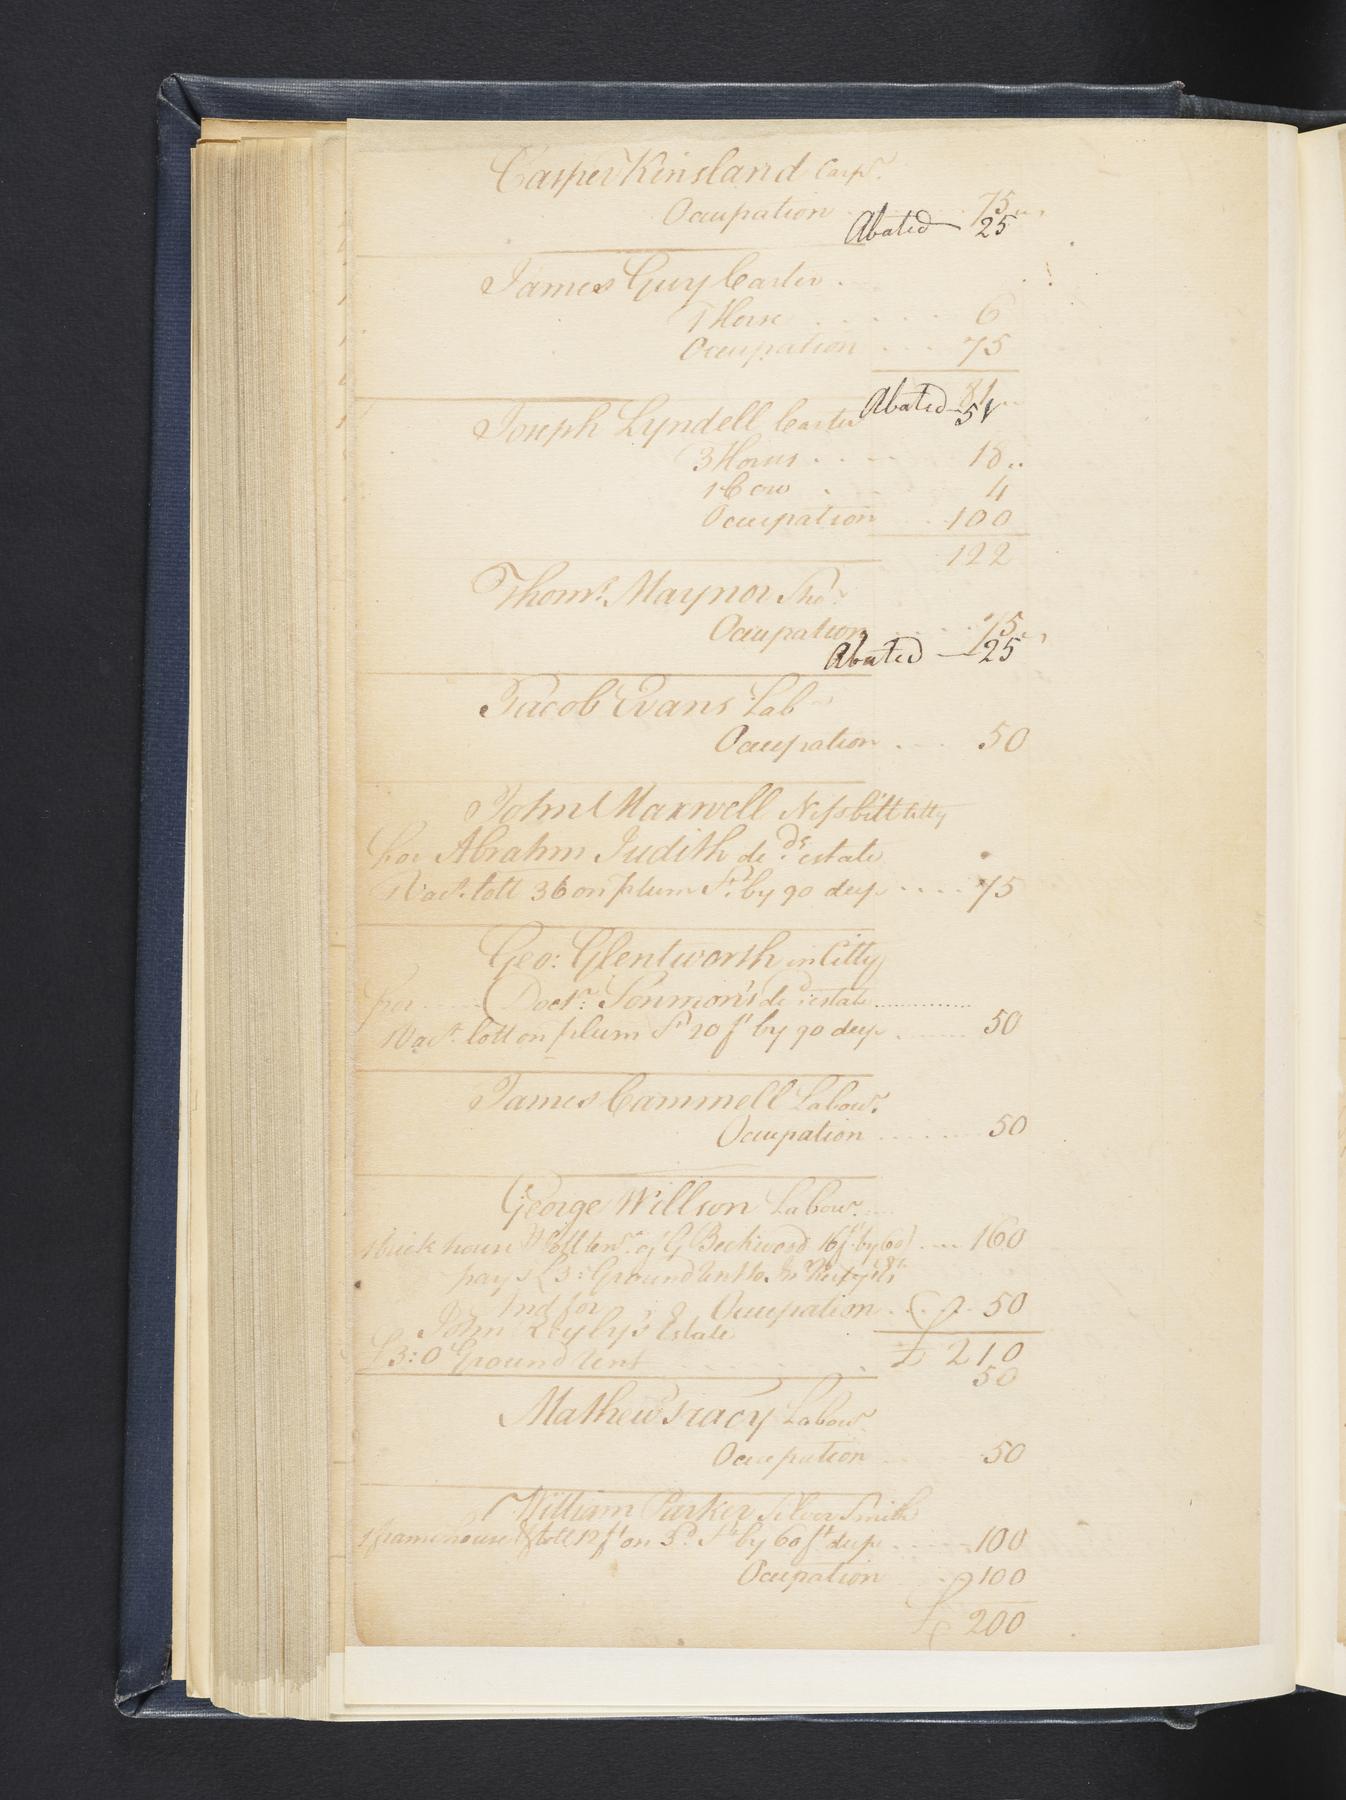 Casper Kinsland Carpr.
Ocupation 75
Abated 25
James Guy Carter
1 Horse 6
Ocupation 75
81
Abated 51
Joseph Lyndell Carter
3 Horses 18
1 Cow 4
Ocupation 100
122
Thoms. Maynor Sho
Ocupation 75
Abated 25
Jacob Evans Lab
Ocupation 50
John Maxwell Nesbitt Citty
for Abrahm Judith de estate
Vact. lott 36 on plum St. by 90 deep 75
Geo: Glentworth in Citty
for Doctr. estate
Vact. lott on plum St 20 ft by 90 deep 50
James Cammell Labour.
Ocupation 50
George Willson Labour.
brick house & lott of G Beckwood 16 ft by 60 160
pays £3: Ground
And for Ocupation 50
John Estate
£3:0 Ground rent £ 210
50
Mathew Tracy Labour
Ocupation 50
William Parker Silver Smith
1 frame house & lott 12 ft on 3d. St by 60 ft deep 100
Ocupation 100
£ 200